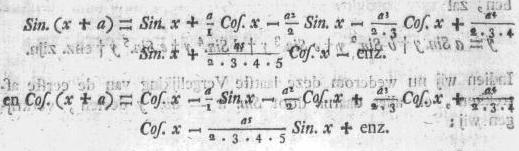 Sin. (x + a) = Sin. x + a/1 Coſ. x — a²/2 Sin. x — a³/2.3 Coſ. x + a⁴/2.3.4
Sin. x + a⁵/2.3.4.5 Coſ. x — enz.
en Coſ. (x + a) = Coſ. x — a/1 Sin. x — a²/2 Coſ. x + a³/2.3 Coſ. x + a⁴/2.3.4
Coſ. x — a⁵/2.3.4.5 Sin. x + enz.